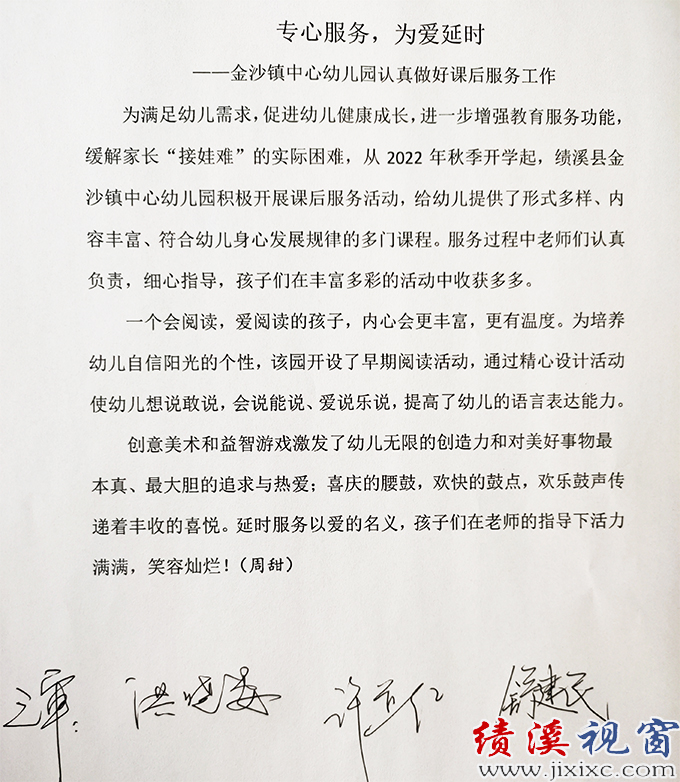 专心服务，为爱延时
——金沙镇中心幼儿园认真做好课后服务工作
为满足幼儿需求，促进幼儿健康成长，进一步增强教育服务功能，
缓解家长“接娃难”的实际困难，从 2022 年秋季开学起，绩溪县金
沙镇中心幼儿园积极开展课后服务活动，给幼儿提供了形式多样、内
容丰富、符合幼儿身心发展规律的多门课程。服务过程中老师们认真
负责，细心指导，孩子们在丰富多彩的活动中收获多多。
一个会阅读，爱阅读的孩子，内心会更丰富，更有温度。为培养
幼儿自信阳光的个性，该园开设了早期阅读活动，通过精心设计活动
使幼儿想说敢说，会说能说、爱说乐说，提高了幼儿的语言表达能力。
创意美术和益智游戏激发了幼儿无限的创造力和对美好事物最
本真、最大胆的追求与热爱；喜庆的腰鼓，欢快的鼓点，欢乐鼓声传
递着丰收的喜悦。延时服务以爱的名义，孩子们在老师的指导下活力
满满，笑容灿烂！（周甜）
舒建民
绩溪视窗
www.jixixc.com